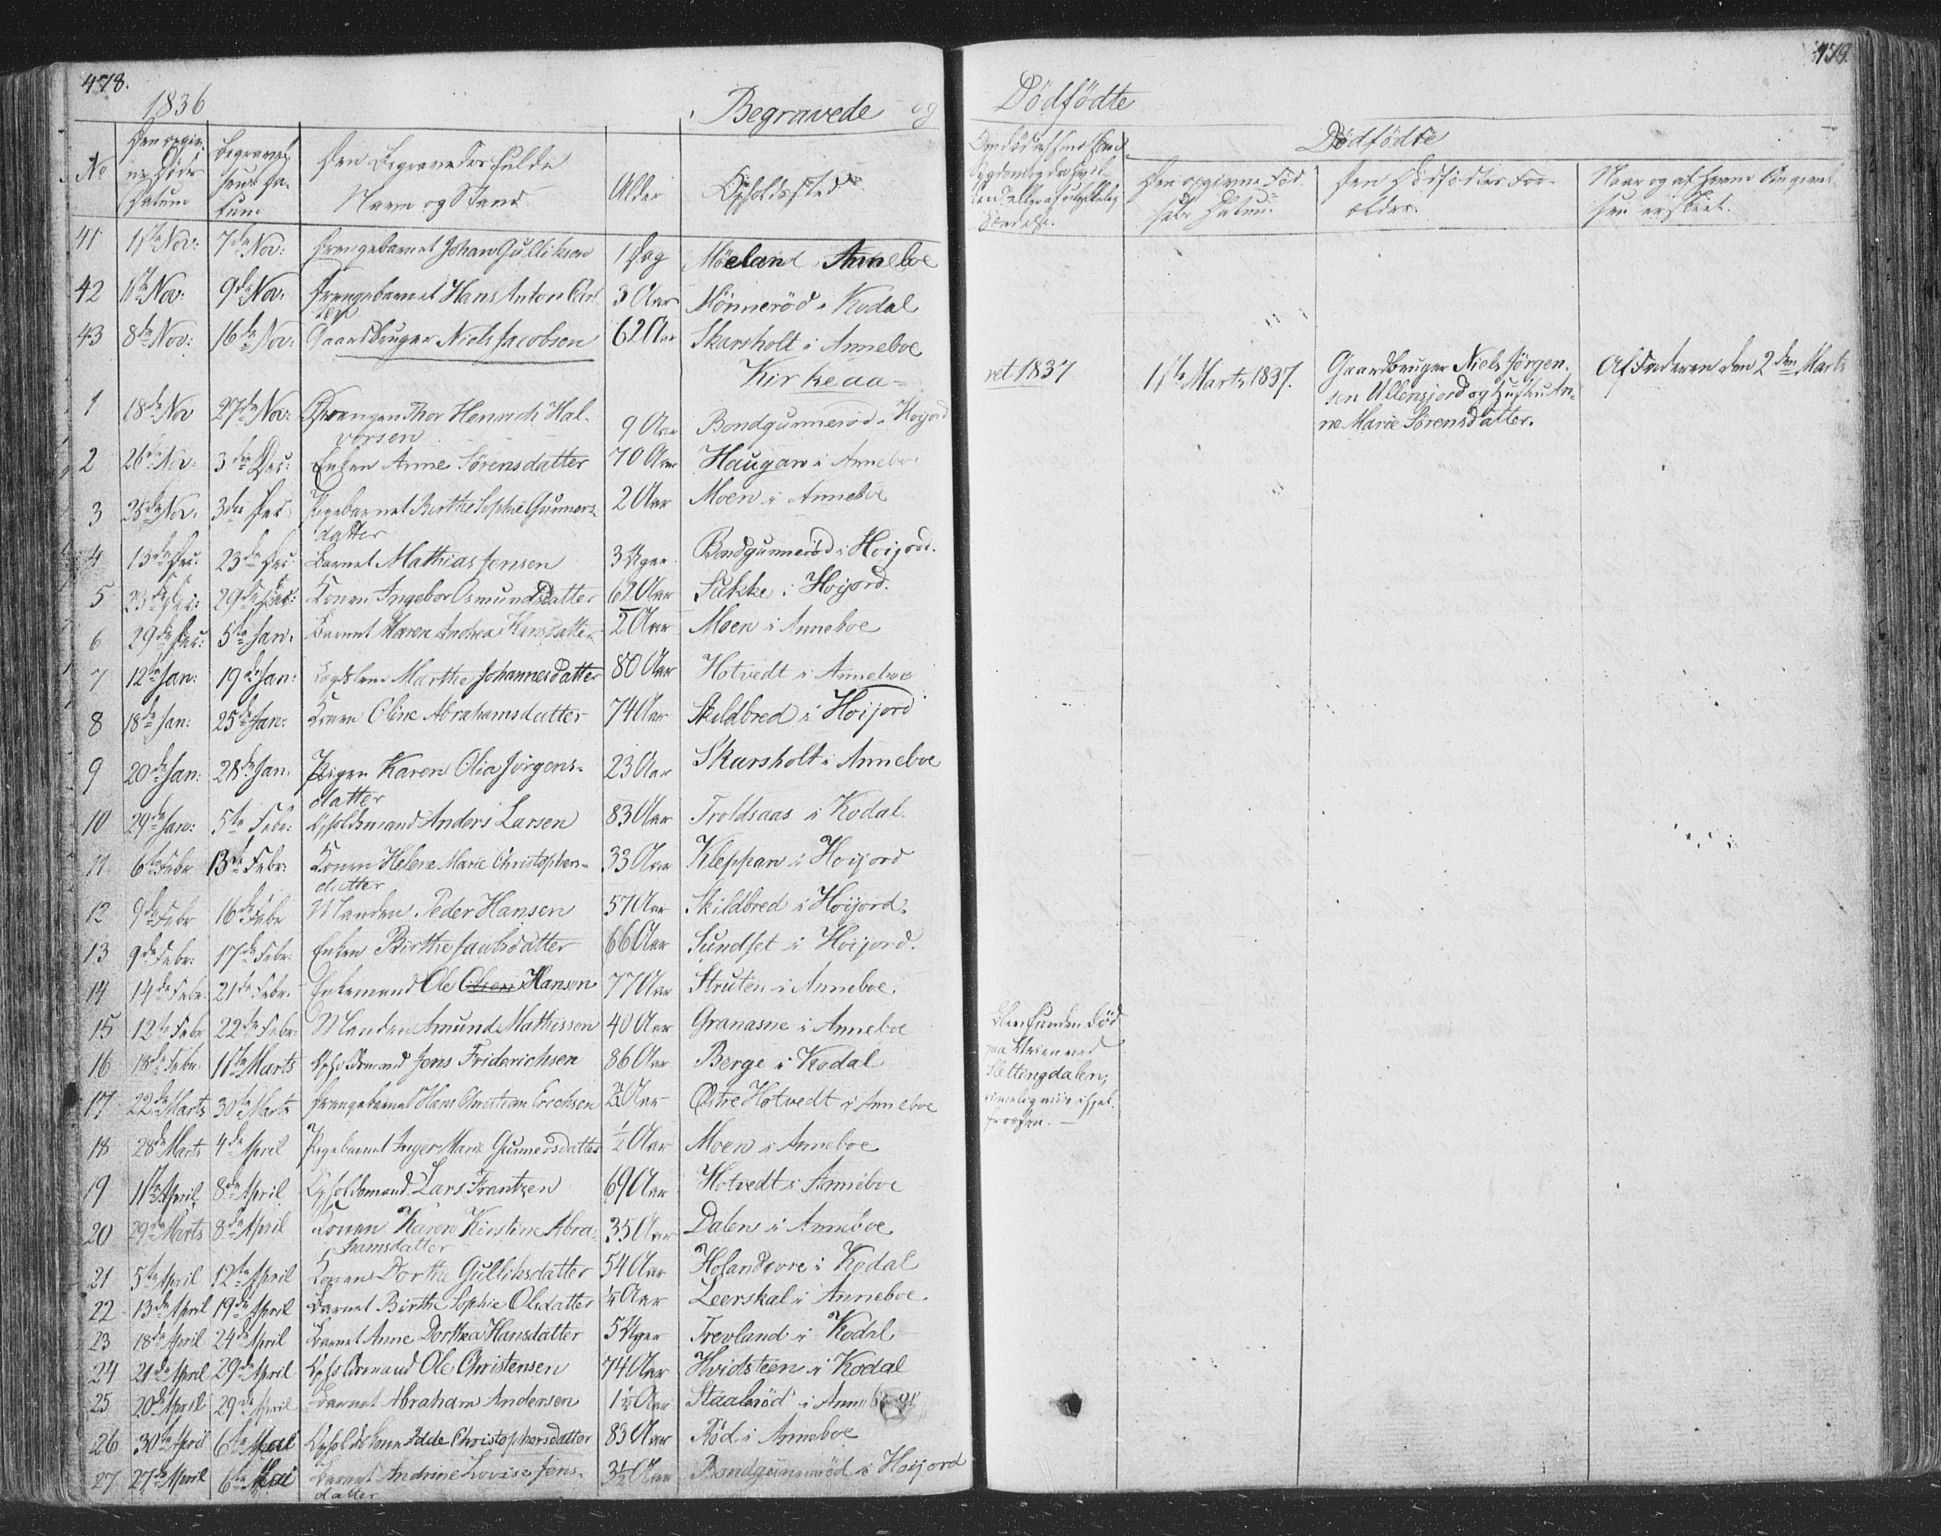 478.
1836
Begravede og
No
Den opgiv-
ne Døds
Datum
Begravel-
sens Da-
tum
Den Begravedes fulde
Navn og Stand
Alder
Opholdssted
41 1ste Nov: 7de Nov: Drengebarnet Johan Gulliksen 1 Dag Möeland i Anneboe
42 1ste Nov: 9de Nov: Drengebarnet Hans Anton Carl-
sen 3 Aar Hönneröd i Kodal
43 8de Nov: 16de Nov: Gaardbruger Niels Jacobsen 62 Aar Skarsholt i Anneboe
Kirkeaa=
1 18de Nov 27de Nov: Drengen Thor Henrich Hal-
vorsen 9 Aar Bondgunneröd i Hoijord
2 26de Nov: 3die Des: Enken Anne Sörensdatter 70 Aar Haugan i Anneboe
3 25de Nov. 3die Des: Pigebarnet Birthe Sophie Gunners-
datter 2 Aar Moen i Anneboe
4 15de Des: 23de Des: Barnet Mathias Jensen 3 Uger Bondgunneröd i Hoijord.
5 23de Des: 29de Des: Konen Ingebor Osmundsdatter 62 Aar Sukke i Hoijord.
6 29de Des: 5te Jan. Barnet Maren Andrea Hansdatter 2 Aar Moen i Anneboe
7 12te Jan: 19de Jan: Marthe Johannesdatter 80 Aar Hotvedt i Anneboe
8 18de Jan: 25de Jan: Konen Oline Abrahamsdatter 74 Aar Skildbred i Hoijord
9 20de Jan: 28de Jan. Pigen Karen Olia Jörgens-
datter 23 Aar Skarsholt i Anneboe
10 29de Jan: 5te Febr: Opholdsmand Anders Larsen 83 Aar Troldsaas i Kodal.
11 6te Febr 13de Febr: Konen Helene Marie Christophers-
datter 33 Aar Kleppan i Hoijord
12 9de Febr 16de Febr Manden Peder Hansen 57 Aar Skildbred i Hoijord.
13 9de Febr: 17de Febr: Enken Birthe Jacobsdatter 66 Aar Sundset i Hoijord.
14 14de Febr: 21de Febr. Enkemand Ole Olsen Hansen 77 Aar Struten i Anneboe.
15 12te Febr 22de Febr: Manden Amund Mathissen 40 Aar Granasne i Anneboe
16 18de Febr. 1ste Marts Opholdsmand Jens Friderichsen 86 Aar Berge i Kodal
17 22de Marts 30te Marts Drengebarnet Hans Christian Erichsen Aar Östre Hotvedt i Anneboe
18 28de Marts 4de April Pigebarnet Inger Marie Gunnersdatter ½ Aar Moen i Anneboe
19 1ste April 8de April Opholdsmand Lars Frantzen 69 Aar Hotvedt i Anneboe
20 29de Marts 8de April Konen Karen Kirstine Abra-
hamsdatter 35 Aar Dalen i Anneboe
21 5te April 12te April Konen Dorthe Gulliksdatter 54 Aar Holand övre i Kodal
22 13de April 19de April Barnet Birthe Sophie Olsdatter ¼ Aar Leerskal i Anneboe.
23 18de April 24de April Barnet Anne Dorthea Hansdatter 5 Uger Trevland i Kodal
24 21de April 29de April Opholdsmand Ole Christensen 74 Aar Hvidsteen i Kodal
25 20de April 29de April Barnet Abraham Andersen 1¼ Aar Staalröd i Anneboe
26 30te April 6te Mai Opholdskone Idde Christophersdatter 83 Aar Röd i Anneboe
27 27de April 6te Mai Barnet Andrine Lovise Jens-
datter 3½ Aar Bondgunneröd i Hoijord
479.
Dödfödte
Dödfödte
Den opgivne Föd-
sels Datum.
Den Dödfödtes For-
ældre.
Naar og af hvem Angivel-
sen er skeet.
ret 1837
1ste Marts 1837.
Gaardbruger Niels Jörgen-
sen Ullensjord og Hustru An-
ne Marie Sörensdatter.
Af Faderen den 2den Marts
Blev funden död
paa Veien ved
Slettingdalen,